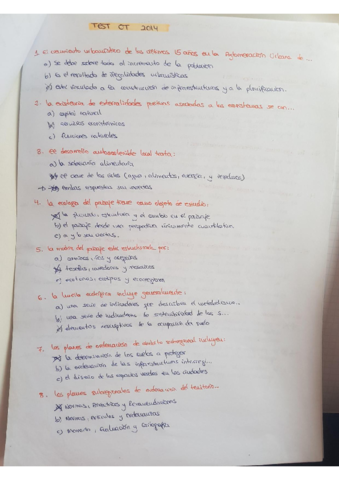 TEST OT 2014
1. El crecimiento urbanístico de los últimos 15 años en la Aglomeración Urbana de...
a) Se debe sobre todo al incremento de la población
b) Es el resultado de ilegalidades urbanísticas
c) Está vinculado a la construcción de infraestructuras y a la planificación.
2. La existencia de externalidades positivas asociadas a los ecosistemas se con...
a) capital natural
b) servicios ecosistémicos
c) funciones naturales
3. El desarrollo autosostenible local trata:
a) la soberanía alimentaria
b) el cierre de los ciclos (agua, alimentos, energía, y residuos)
c) Ambas respuestas son correctas
4. La ecología del paisaje tiene como objeto de estudio:
a) la función, estructura y el cambio en el paisaje
b) el paisaje desde una perspectiva únicamente cuantitativa
c) a y b son ciertas.
5. La matriz del paisaje está estructurada por:
a) corredores, ríos y
b) teselas, corredores y
c) matorrales, ecotipos y
6. La huella ecológica incluye generalmente:
a) una serie de indicadores que describen el metabolismo...
b) una serie de indicadores de sostenibilidad de las c...
c) elementos descriptivos de la ocupación de suelo
7. Los planes de ordenación de ámbito subregional incluyen:
a) la determinación de los suelos a proteger
b) la ordenación de las infraestructuras
c) el diseño de los espacios verdes en las ciudades
8. Los planes subregionales de ordenación del territorio...
a) Normas, Directrices y Recomendaciones
b) Normas, Artículos y Ordenanzas
c) Memoria, Evaluación y Cartografía